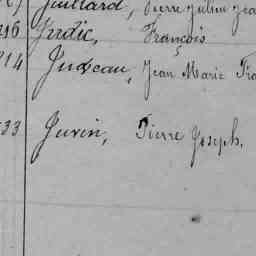 Juillard, Pierre Julien Jea
216 Jurdic, François
214 Judeau, Jean Marie Fra
533 Juvin, Pierre Joseph.